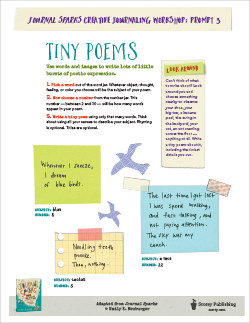 JOURNAL SPARKS CREATIVE JOURNALING WORKSHOP: PROMPT 3
TINY POEMS
Use words and images to write lots of little
bursts of poetic expression.
1. Pick a word out of the word jar. Whatever object, thought,
feeling, or color you choose will be the subject of your poem.
2. Now choose a number from the number jar. This
number — between 2 and 20 — will be how many words
appear in your poem.
3. Write a tiny poem using only that many words. Think
about using all your senses to describe your subject. Rhyming
is optional. Titles are optional.
LOOK AROUND
Can't think of what
favorite
around you and
choose something
nearby to observe:
your shoe, your
big toe, a banana
peel, the swing in
the backyard, your
cat, an ant crawling
across the floor —
anything. Write
a tiny poem about it,
including the tiniest
details you see.
Whenever I sneeze,
I dream
of blue birds.
SUBJECT: blue
NUMBER: 8
The last time I got lost
I was speed walking,
and fast talking, and
not paying attention.
The sky was my
couch.
NUMBER: 22
Needling teeth
prickle.
Then, nothing.
SUBJECT: cactus
NUMBER: 5
Adapted from Journal Sparks
© Emily K. Neuburger
Storey Publishing
storey.com